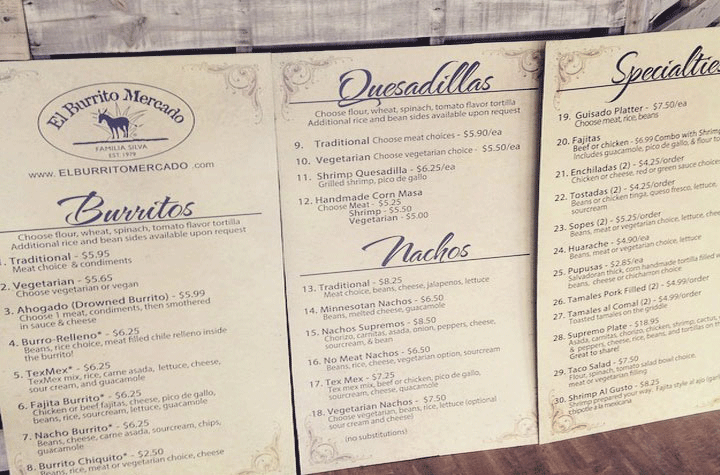 El Burrito Mercado
FAMILIA SILVA
EST. 1979
www.ELBURRITOMERCADO.com
Burritos
Choose flour, wheat, spinach, tomato flavor tortilla
Additional rice and bean sides available upon request
1. Traditional - $5.95
Meat choice & condiments
2. Vegetarian - $5.65
Choose vegetarian or vegan
3. Ahogado (Drowned Burrito) - $5.99
Choose 1 meat, condiments, then smothered
in sauce & cheese
4. Burro-Relleno* - $6.25
Beans, rice choice, meat filled chile relleno inside
the burrito!
5. TexMex* - $6.25
TexMex mix, rice, carne asada, lettuce, cheese,
sour cream, and guacamole
6. Fajita Burrito* - $6.25
Chicken or beef fajitas, cheese, pico de gallo,
beans, rice, sourcream, lettuce, guacamole
7. Nacho Burrito* - $6.25
Beans, cheese, carne asada, sourcream, chips,
guacamole
8. Burrito Chiquito* - $2.50
Beans, rice, meat or vegetarian choice, cheese
Quesadillas
Choose flour, wheat, spinach, tomato flavor tortilla
Additional rice and bean sides available upon request
9. Traditional Choose meat choices - $5.90/ea
10. Vegetarian Choose vegetarian choice - $5.50/ea
11. Shrimp Quesadilla - $6.25/ea
Grilled shrimp, pico de gallo
12. Handmade Corn Masa
Choose Meat - $5.25
Shrimp - $5.50
Vegetarian - $5.00
Nachos
13. Traditional - $8.25
Meat choice, beans, cheese, jalapenos, lettuce
14. Minnesotan Nachos - $6.50
Beans, melted cheese, guacamole
15. Nachos Supremos - $8.50
Chorizo, carnitas, asada, onion, peppers, cheese,
sourcream, & bean
16. No Meat Nachos - $6.50
Beans, rice, cheese, vegetarian option, sourcream
17. Tex Mex - $7.25
Tex mex mix, beef or chicken, pico de gallo,
sourcream, cheese, guacamole
18. Vegetarian Nachos - $7.50
Choose vegetarian, beans, rice, lettuce (optional
sour cream and cheese)
(no substitutions)
Specialties
19. Guisado Platter - $7.50/ea
Choose meat, rice, beans
20. Fajitas
Beef or chicken - $6.99 Combo with Shrimp
Includes guacamole, pico de gallo, & flour
21. Enchiladas (2) - $4.25/order
Chicken or cheese, red or green sauce choice
22. Tostadas (2) - $4.25/order
Beans or chicken tinga, queso fresco, lettuce,
sourcream
23. Sopes (2) - $5.25/order
Beans, meat or vegetarian choice, lettuce, cheese
24. Huarache - $4.90/ea
Beans, meat or vegetarian choice, lettuce
25. Pupusas - $2.85/ea
Salvadoran thick, corn handmade tortilla filled
beans, cheese or chicharron choice
26. Tamales Pork Filled (2) - $4.99/order
27. Tamales al Comal (2) - $4.99/order
Toasted tamales on the griddle
28. Supremo Plate - $18.95
Asada, carnitas, chorizo, chicken, shrimp, cactus,
& peppers, cheese, rice, beans, and tortillas on
Great to share!
29. Taco Salad - $7.50
Flour, spinach, tomato salad bowl choice,
meat or vegetarian filling
30. Shrimp Al Gusto - $8.25
Shrimp prepared your way. Fajita style al ajo
chipotle a la mexicana